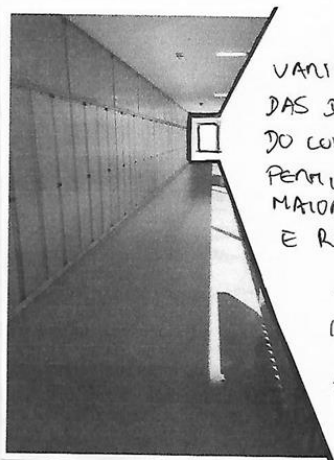 VARI
DAS D
DO CO
PERMI
MAIOR
E R